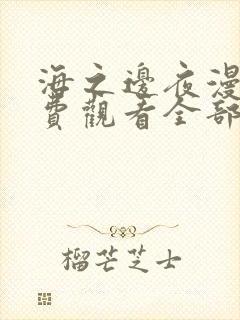 海之邊夜漫
費觀看全部
榴芒芝士